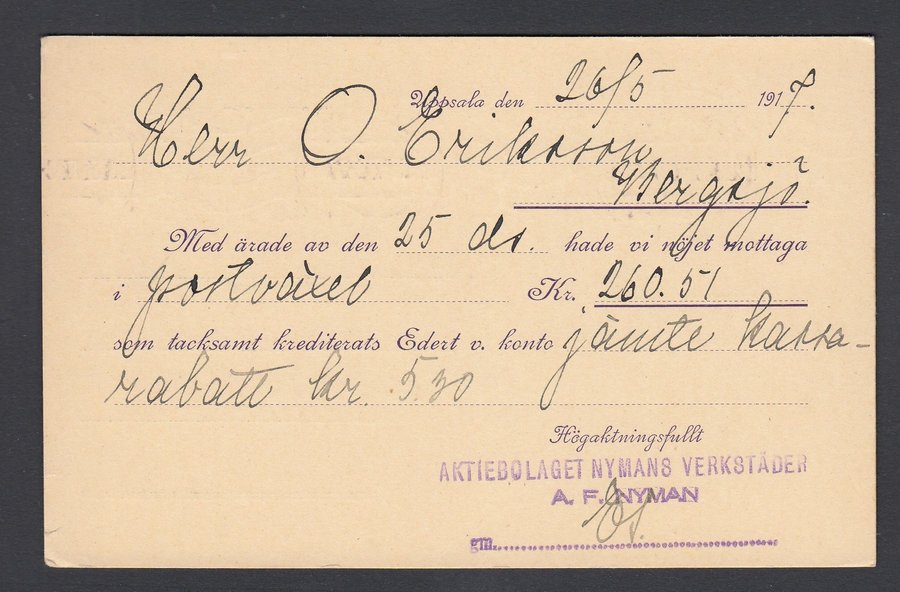 Uppsala den 26/5 1917.
Herr O. Eriksson
Bergsjö.
Med ärade av den 25 ds. hade vi nöjet mottaga
i postväxel Kr. 260.51
som tacksamt krediterats Edert v. konto jämte kassa-
rabatt kr. 5.30
Högaktningsfullt
AKTIEBOLAGET NYMANS VERKSTÄDER
A. F. NYMAN
gm.